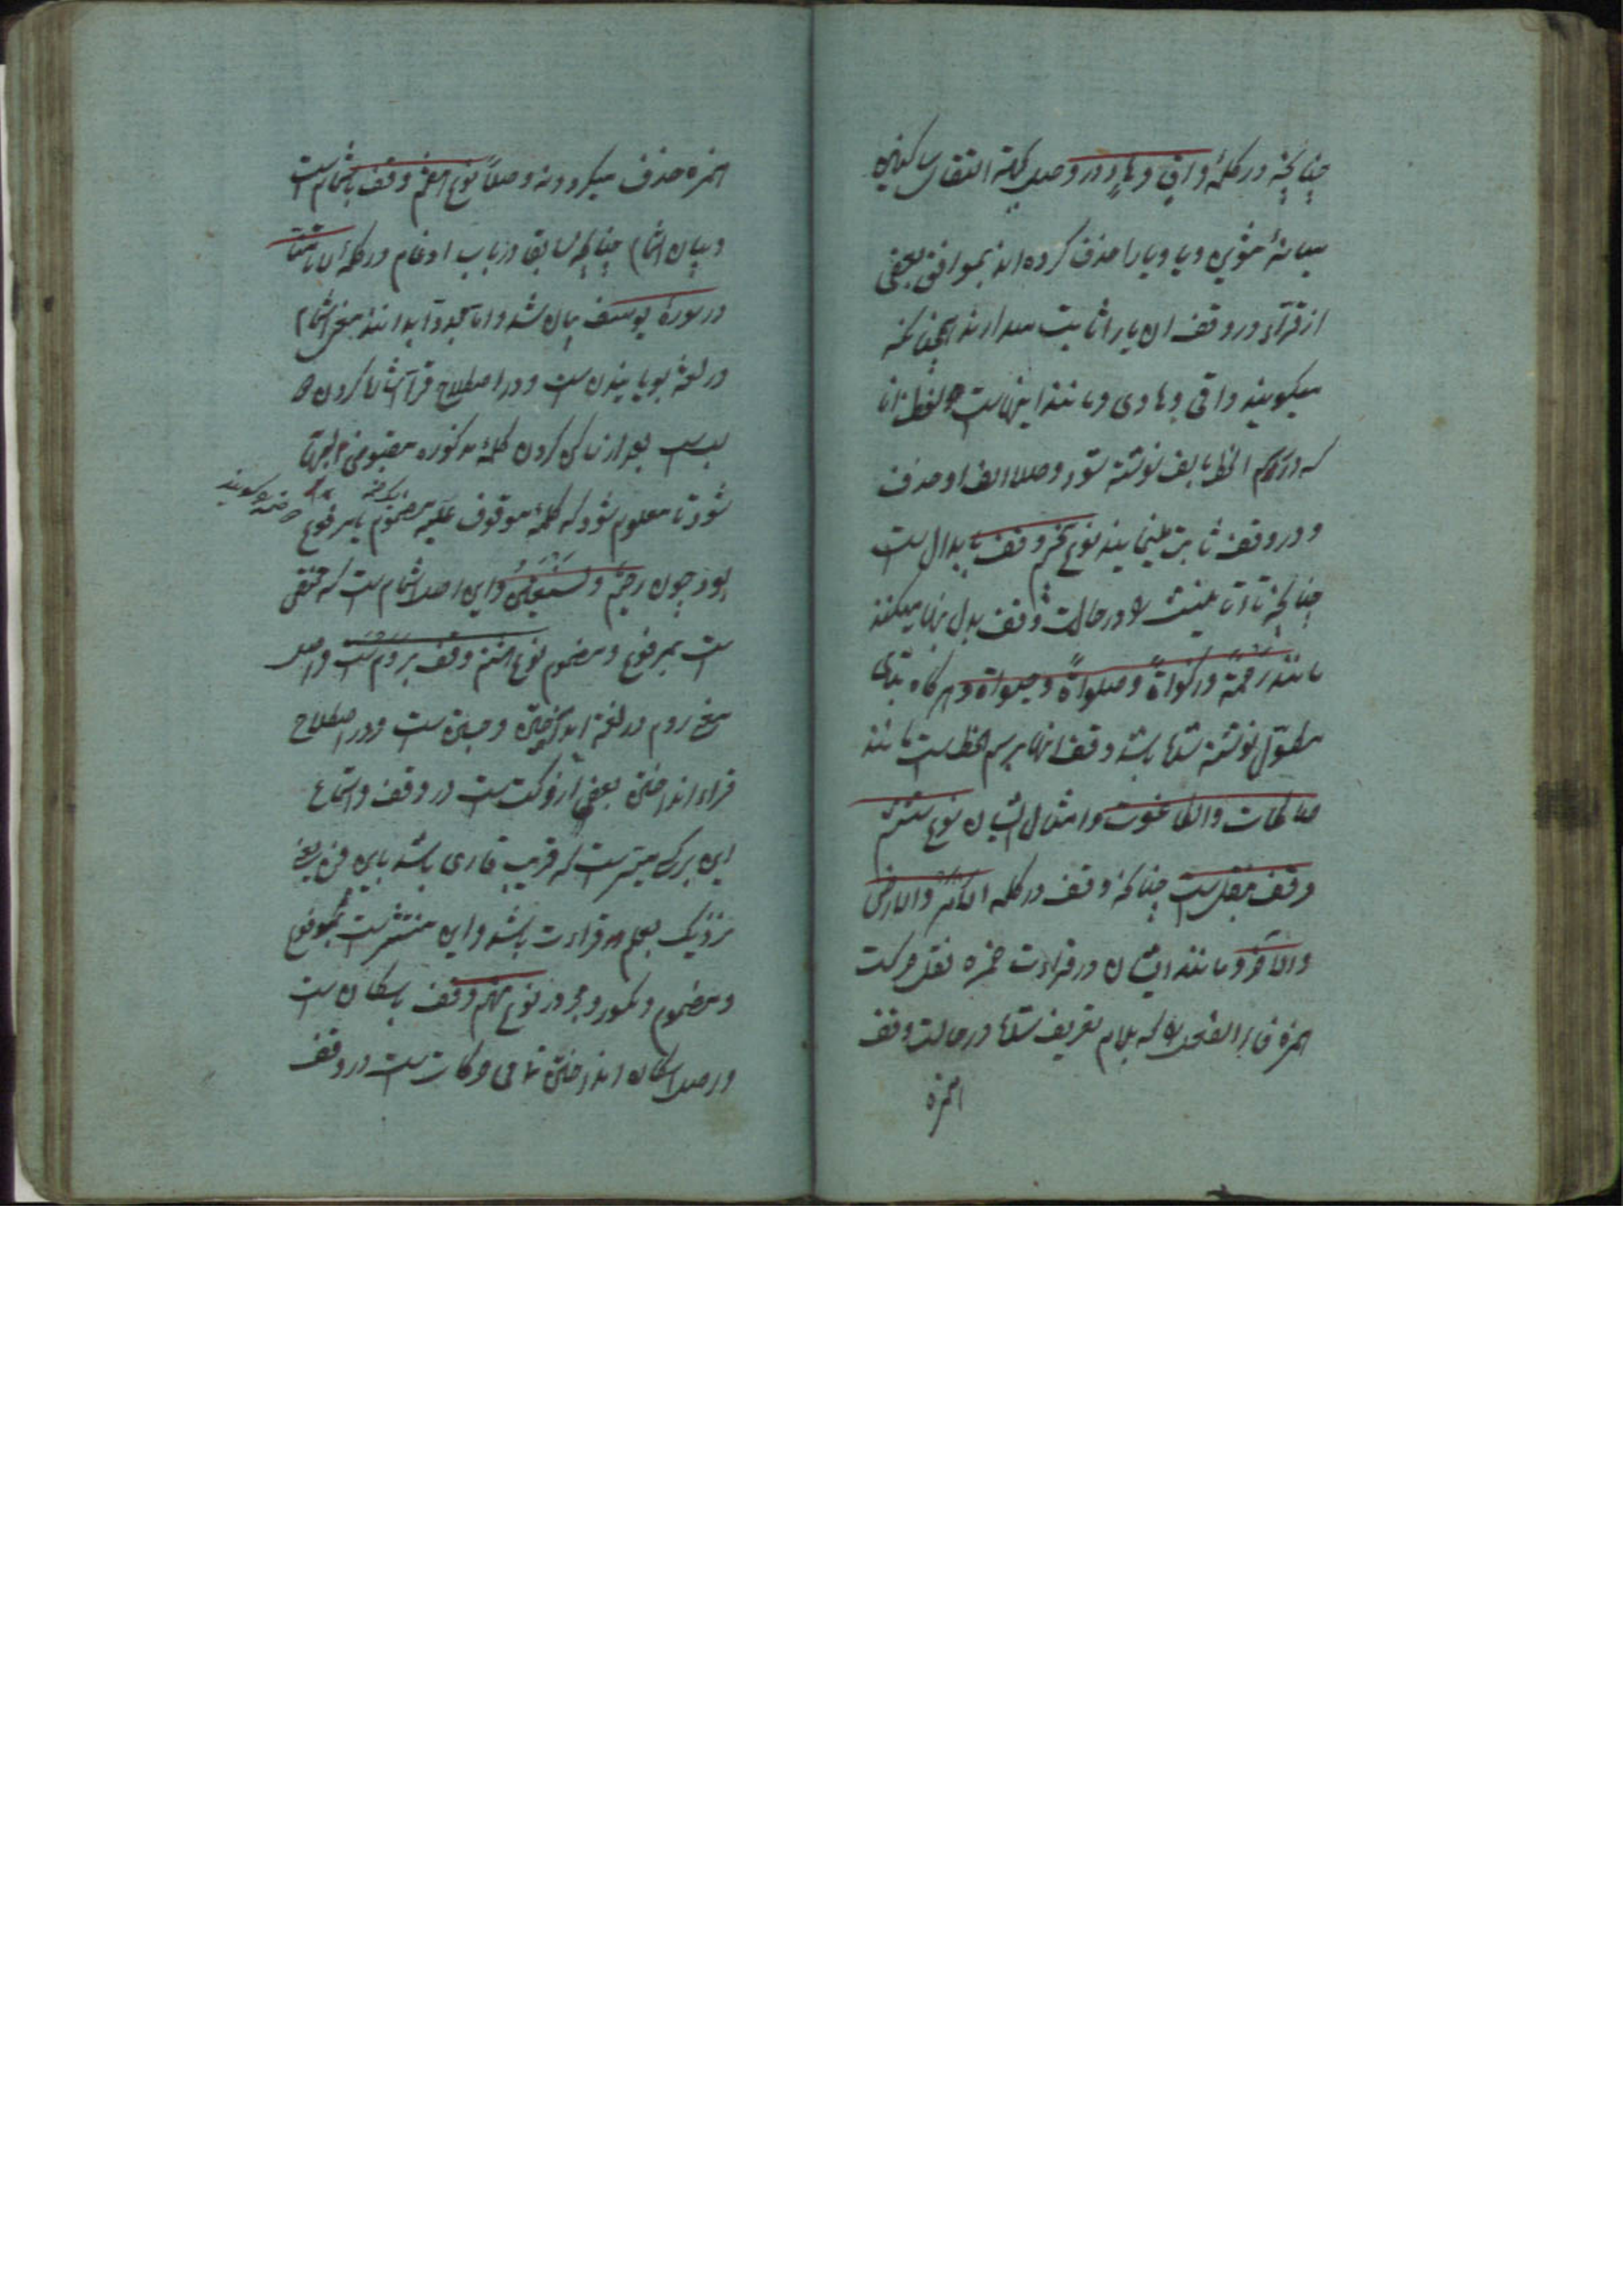 چنانچه در کلمهٔ واقٍ و هادٍ در وصل بجهة التقای ساکنین
میانهٔ تنوین و یا و یا را حذف کرده اند بموافق بعضی
از قرآء در وقف ان یا را ثابت میدارند همچنانکه
میکویند واقی و هادی و مانند اینهاست و لفظ انا
که در رسم الخط بالف نوشته شود وصلا الف او حذف
و در وقف ثابت مینمایند نوع پنجم وقف بابدال ست
چنانچه تاء تانیث را در حالت وقف بدل بها میکنند
مانند رحمة و زکواة و صلواة و حیواة و هرکاه بتای
مطوّل نوشته شده باشد وقف انها برسم الخط ست مانند
صالحات و الطاغوت و امثال ایشان نوع ششم
وقف بنقل ست چنانکه وقف در کلمه الانهر و الارض
و الآخر و مانند ایشان در قراءت حمزه نقل حرکت
همزه فاء الفعل را که بلام تعریف شده در حالت وقف
همزه
همزه حذف میکردد نه وصلاً نوع هفتم وقف باشمام ست
و بیان اشمام چنانچه سابقا در باب ادغام در کلمهٔ لا تامنّا
در سورهٔ یوسف بیان شد و اما بدانند معنی اشمام
در لغة بویانیدن ست و در اصطلاح قرآء اشاره کردن
بلب ست بعد از ساکن کردن کلمهٔ مذکوره
شود تا معلوم شود که کلمهٔ موقوف علیه مضموم یا مرفوع
بود چون رحیمٌ و نستعینُ و این اصل اشمام ست که مختص
ست بمرفوع و مضموم نوع هشتم وقف بروم ست و اصل
معنی روم در لغة انداختن و جستن ست و در اصطلاح
قراء انداختن بعضی از حرکت ست در وقف و استماع
این بر کسی میسرست که قریب قاری باشد یا این فن یعنی
نزدیک بعلم قراءت باشد و این منتشرست بمرفوع
و مضموم و مکسور و مجرور نوع نهم وقف باسکان ست
و اصل اسکان انداختن تمامی حرکات ست در وقف